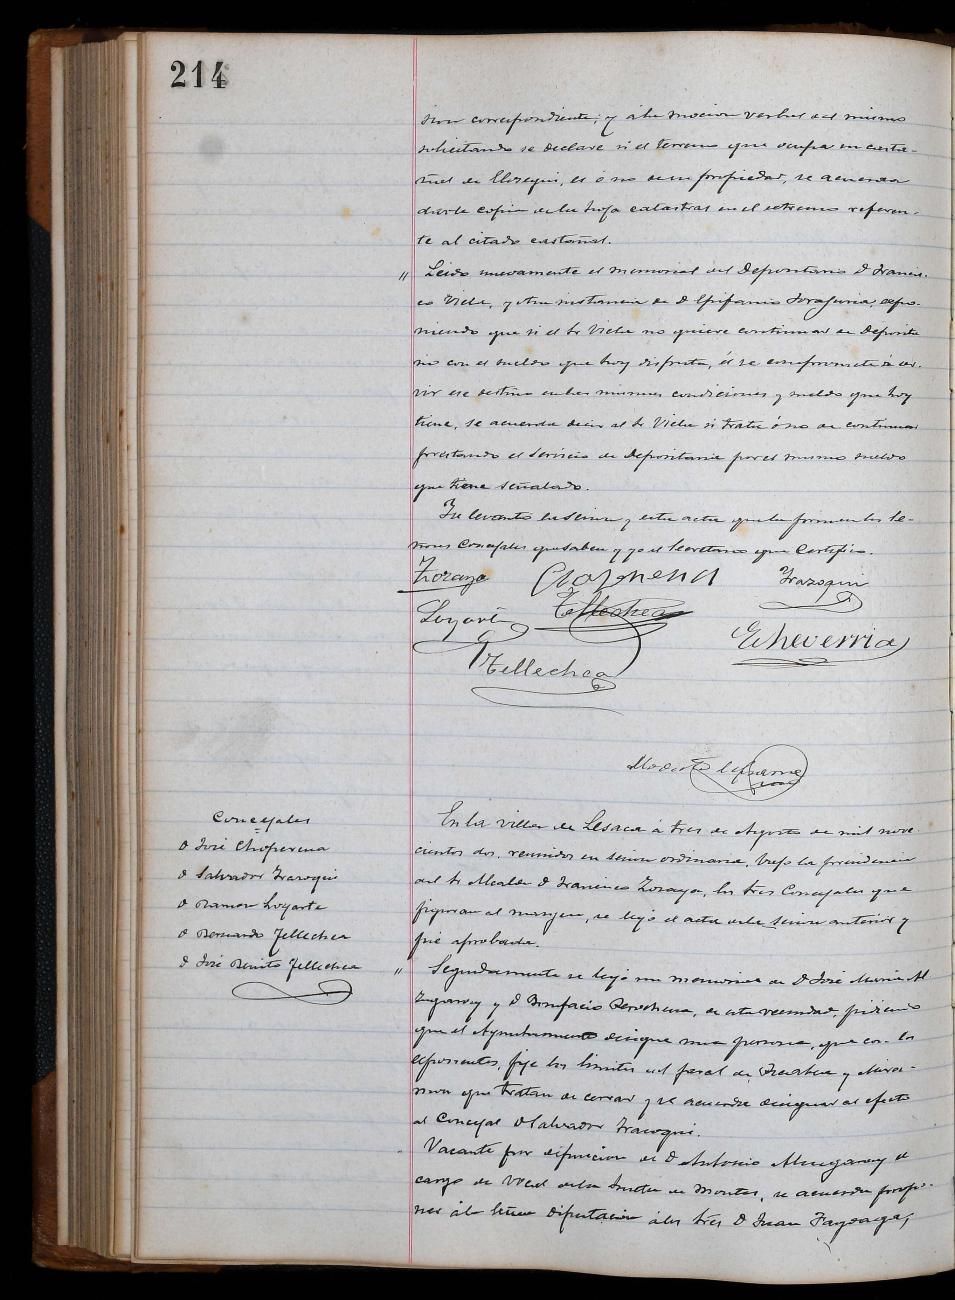 214
sion correspondiente; y á la mocion verbal del mismo
solicitando se declare si el terreno que ocupa un casta-
ñal de es ó no de su propiedad, se acuerda
darle copia de la hoja catastral en el extremo referen-
te al citado castañal.
" Leido nuevamente el memorial del Depositario D Francis-
co Viela, y otra instancia de D Epifanio expo-
niendo que si el Sr Viela no quiere continuar de Deposita
rio con el sueldo que hoy disfruta, él se compromete á ser-
vir ese destino en las mismas condiciones y sueldo que hoy
tiene, se acuerda decir al Sr Viela si trata ó no de continuar
prestando el servicio de Depositaria por el mismo sueldo
que tiene señalado.
Se levantó la sesion y esta acta que la firman los Se-
ñores Concejales que saben y yo el Secretario que Certifico.
Zozaya Choperena Irazoqui
Loyarte Tellechea
Echeverria
Tellechea
Modesto
Concejales
D José Choperena
D Salvador Irazoqui
D Ramon Loyarte
D Bernardo Tellechea
D José Benito Tellechea
En la villa de Lesaca á tres de Agosto de mil nove
cientos dos, reunidos en sesion ordinaria, bajo la presidencia
del Sr Alcalde D Francisco Zozaya, los tres Concejales que
figuran al margen, se leyó el acta de la sesion anterior y
fué aprobada.
" Seguidamente se leyó un memorial de D José Maria Al
zugaray y D Bonifacio de esta vecindad, pidiendo
que el Ayuntamiento designe una persona, que con los
exponentes, fije los limites del y
que tratan de cerrar y se acuerda designar al efecto
al Concejal D Salvador Irazoqui.
Vacante por defuncion de D Antonio Alzugaray el
cargo de Vocal de la Junta de Montes, se acuerda propo-
ner á la Excma Diputacion á los tres D Juan Fagoaga,